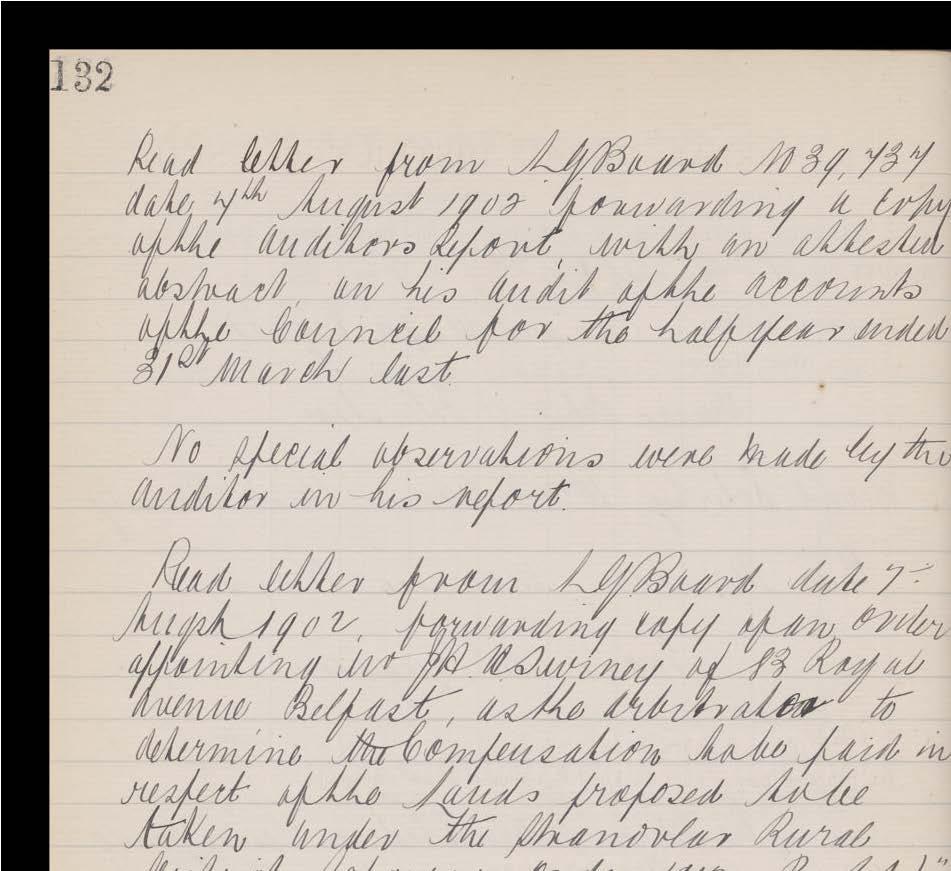 132
Read letter from LGBoard No 39,737
date 7th August 1902 forwarding a copy
ofthe Auditors Report, with an attested
abstract, on his audit ofthe accounts
ofthe Council for the halfyear ended
31st March last.
No special observations were made by the
Auditor in his report.
Read letter from LGBoard date 7-
Augst 1902, forwarding copy of an Order
appointing Mr Swiney of 83 Royal
Avenue Belfast, as the Arbitrator to
determine the Compensation to be paid in
respect ofthe Lands proposed to be
taken under the Stranorlar Rural